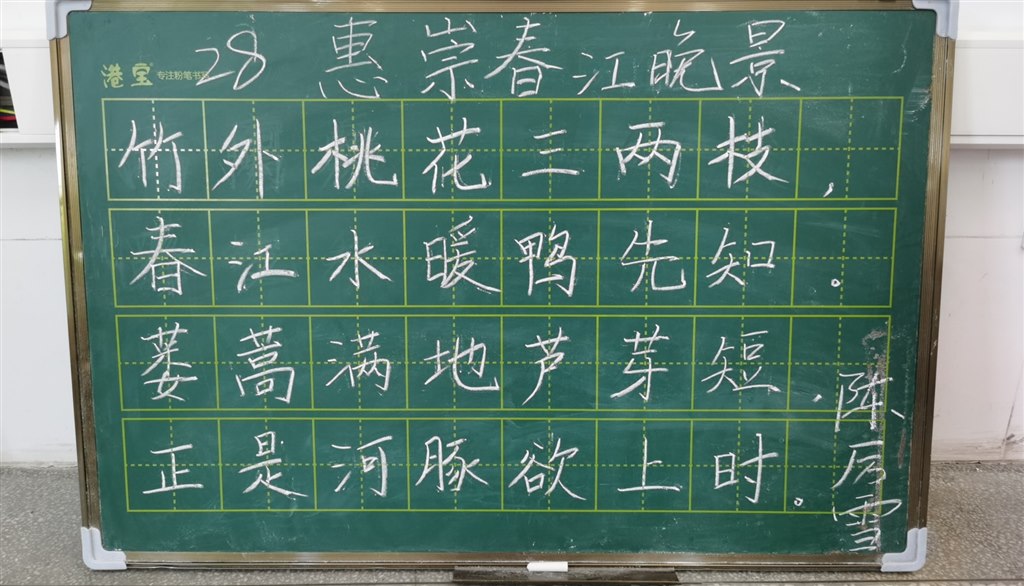 港宝 专注粉笔书写
28 惠崇春江晚景
竹外桃花三两枝，
春江水暖鸭先知。
蒌蒿满地芦芽短，
正是河豚欲上时。
陈厉雪